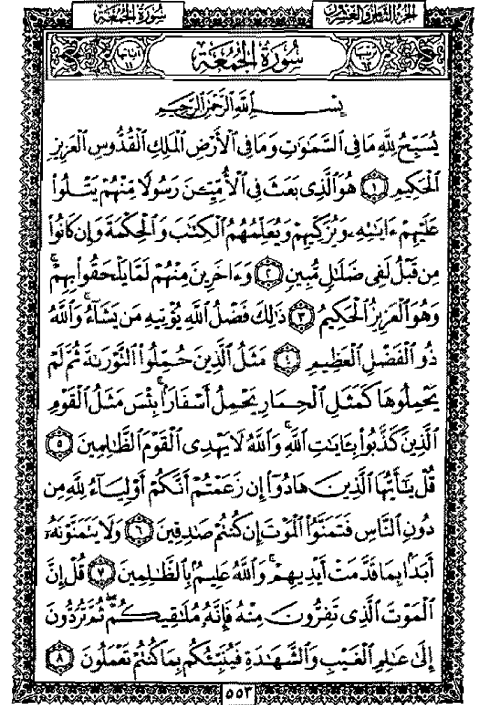 سُورَةُ الجُمُعَةِ الجُزْءُ الثَّامِنُ وَالعِشْرُونَ
سُورَةُ الجُمُعَةِ
بِسْمِ ٱللَّهِ ٱلرَّحْمَٰنِ ٱلرَّحِيمِ
يُسَبِّحُ لِلَّهِ مَا فِي ٱلسَّمَٰوَٰتِ وَمَا فِي ٱلْأَرْضِ ٱلْمَلِكِ ٱلْقُدُّوسِ ٱلْعَزِيزِ
ٱلْحَكِيمِ ١ هُوَ ٱلَّذِي بَعَثَ فِي ٱلْأُمِّيِّـۧنَ رَسُولًا مِّنْهُمْ يَتْلُوا۟
عَلَيْهِمْ ءَايَٰتِهِۦ وَيُزَكِّيهِمْ وَيُعَلِّمُهُمُ ٱلْكِتَٰبَ وَٱلْحِكْمَةَ وَإِن كَانُوا۟
مِن قَبْلُ لَفِي ضَلَٰلٍ مُّبِينٍ ٢ وَءَاخَرِينَ مِنْهُمْ لَمَّا يَلْحَقُوا۟ بِهِمْ ۚ
وَهُوَ ٱلْعَزِيزُ ٱلْحَكِيمُ ٣ ذَٰلِكَ فَضْلُ ٱللَّهِ يُؤْتِيهِ مَن يَشَآءُ ۚ وَٱللَّهُ
ذُو ٱلْفَضْلِ ٱلْعَظِيمِ ٤ مَثَلُ ٱلَّذِينَ حُمِّلُوا۟ ٱلتَّوْرَىٰةَ ثُمَّ لَمْ
يَحْمِلُوهَا كَمَثَلِ ٱلْحِمَارِ يَحْمِلُ أَسْفَارًۢا ۚ بِئْسَ مَثَلُ ٱلْقَوْمِ
ٱلَّذِينَ كَذَّبُوا۟ بِـَٔايَٰتِ ٱللَّهِ ۚ وَٱللَّهُ لَا يَهْدِي ٱلْقَوْمَ ٱلظَّٰلِمِينَ ٥
قُلْ يَٰٓأَيُّهَا ٱلَّذِينَ هَادُوٓا۟ إِن زَعَمْتُمْ أَنَّكُمْ أَوْلِيَآءُ لِلَّهِ مِن
دُونِ ٱلنَّاسِ فَتَمَنَّوُا۟ ٱلْمَوْتَ إِن كُنتُمْ صَٰدِقِينَ ٦ وَلَا يَتَمَنَّوْنَهُۥٓ
أَبَدًۢا بِمَا قَدَّمَتْ أَيْدِيهِمْ ۚ وَٱللَّهُ عَلِيمٌۢ بِٱلظَّٰلِمِينَ ٧ قُلْ إِنَّ
ٱلْمَوْتَ ٱلَّذِي تَفِرُّونَ مِنْهُ فَإِنَّهُۥ مُلَٰقِيكُمْ ۖ ثُمَّ تُرَدُّونَ
إِلَىٰ عَٰلِمِ ٱلْغَيْبِ وَٱلشَّهَٰدَةِ فَيُنَبِّئُكُم بِمَا كُنتُمْ تَعْمَلُونَ ٨
٥٥٣